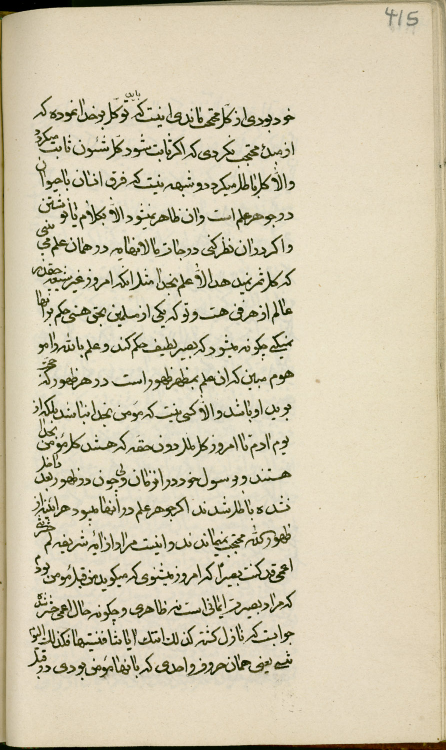 415
خود بودی از کل محتجب ماندی اینست که توکل بر خدا نموده که
از مبدء محتجب نگردی که اگر ثابت شود کل شئون ثابت میگردد
والا کل باطل میگردد و شبهه نیست که فرق انسان با حیوان
در جوهر علم است و آن ظاهر نمیشود الا بکلام یا نوشتن
و اگر در آن نظر کنی درجات بالانهایه در همان علم می بینی
که کل ثمر نمیدهد الا علم بخدا مثلا آنکه امروز غیر شیعه
عالم از هر فرقی هست و تو که یکی از مسلمین بحق هستی حکم بر آنها
نمیکنی چگونه میشود که بصیر لطیف حکم کند و علم بالله
هم مبین که آن علم بمظهر ظهور است در هر ظهور که حجت
بر ید او باشد والا کسی نیست که مؤمن بخدا نباشد بلکه از
یوم آدم تا امروز کل ملل دون حقه که هستند کل مؤمن بخدا
هستند و برسول خود در آن زمان ولی چون در ظهور بعد داخل
نشده باطل شدند اگر جوهر علم در آنها میبود هر آینه از
ظهور الله محتجب نمیماندند و اینست مراد از آیه شریفه لم حشرتنی
اعمی قد کنت بصیرا که امروز مثنوی که میگوید من قبل مؤمن بودم
که مراد بصیرت ایمانی است نه ظاهری و چگونه حال اعمی حشر شده
جوابست که نازل گشته کذلک اتتک آیاتنا فنسیتها فکذلک الیوم
تنسی یعنی همان حروف واحدی که بآنها مؤمن بودی در قبل